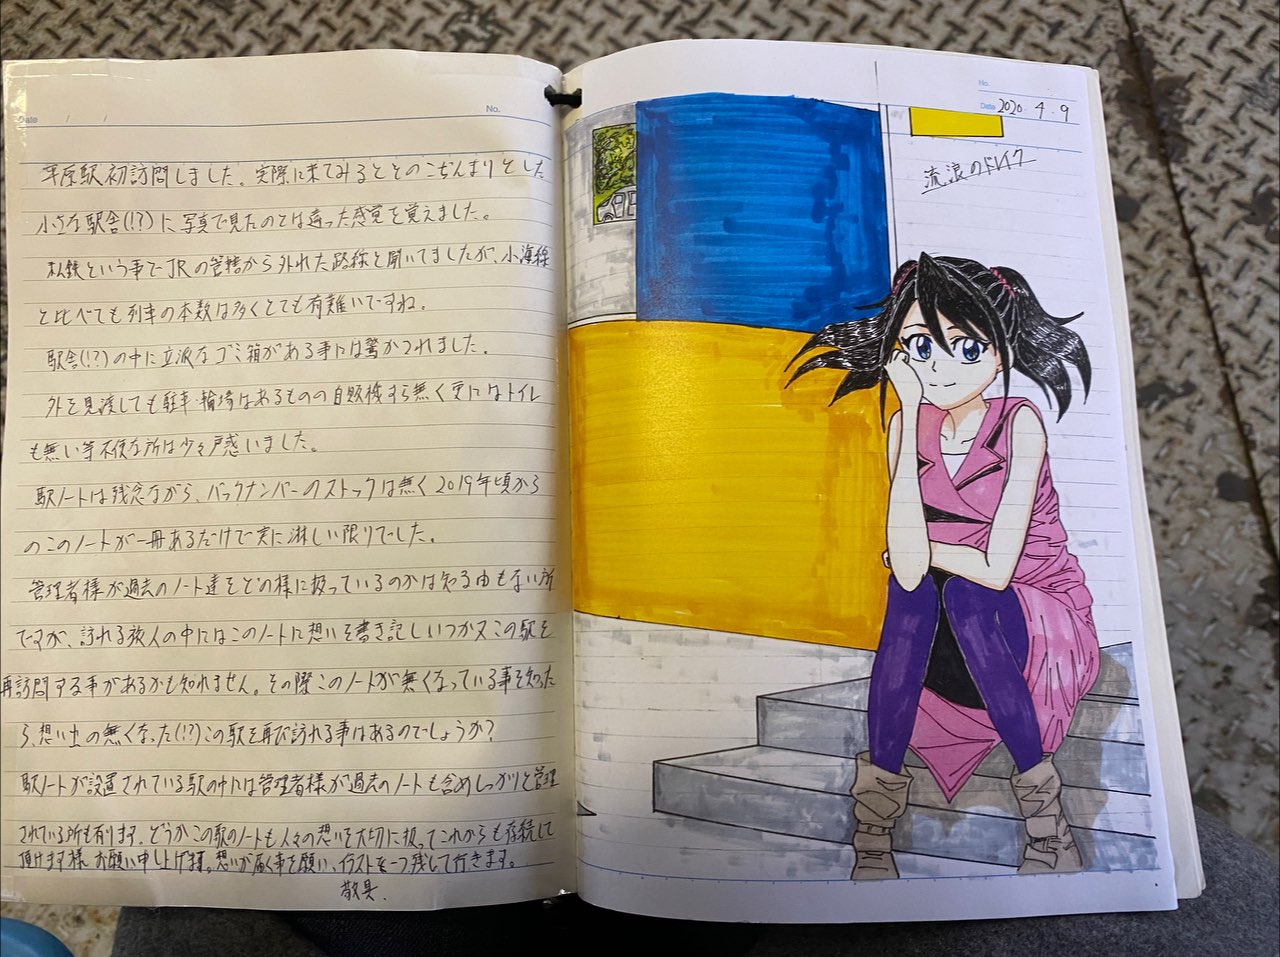 Date / /
No.
平原駅初訪問しました。実際に来てみるとそのこぢんまりとした
小さな駅舎(!?)に写真で見たのとは違った感覚を覚えました。
私鉄という事でJRの管轄から外れた路線と聞いてましたが、小海線
と比べても列車の本数は多くとても有難いですね。
駅舎(!?)の中に立派なゴミ箱がある事には驚かされました。
外を見渡しても駐車・輪場はあるものの自販機すら無く更にはトイレ
も無い等不便な所は少々戸惑いました。
駅ノートは残念ながら、バックナンバーのストックは無く2019年頃から
のこのノートが一冊あるだけで実に淋しい限りでした。
管理者様が過去のノート達をどの様に扱っているのかは知る由もない所
ですが、訪れる旅人の中にはこのノートに想いを書き記しいつか又この駅を
再訪問する事があるかも知れません。その際このノートが無くなっている事を知った
ら、想い出の無くなった(!?)この駅を再び訪れる事はあるのでしょうか?
駅ノートが設置されている駅の中には管理者様が過去のノートも含めしっかりと管理
されている所も有ります。どうかこの駅のノートも人々の想いを大切に扱ってこれからも存続して
頂けます様お願い申し上げます。想いが届く事を願い、イラストを一つ残して行きます。
敬具.
No.
Date 2020・4・9
流浪のドレイク